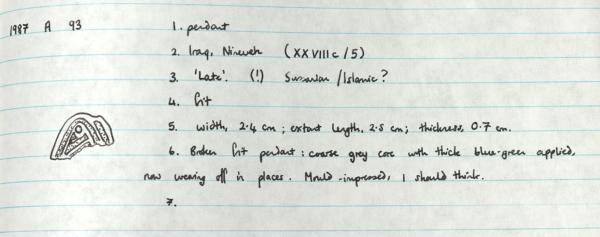 1987 A 93
1. pendant
2. Iraq, Nineveh (XXVIIIc/5)
3. 'Late'. (!) Sassanian / Islamic?
4. frit
5. width, 2.4 cm; extant length, 2.5 cm; thickness, 0.7 cm.
6. Broken frit pendant: coarse grey core with thick blue-green applied,
now wearing off in places. Mould-impressed, I should think.
7.